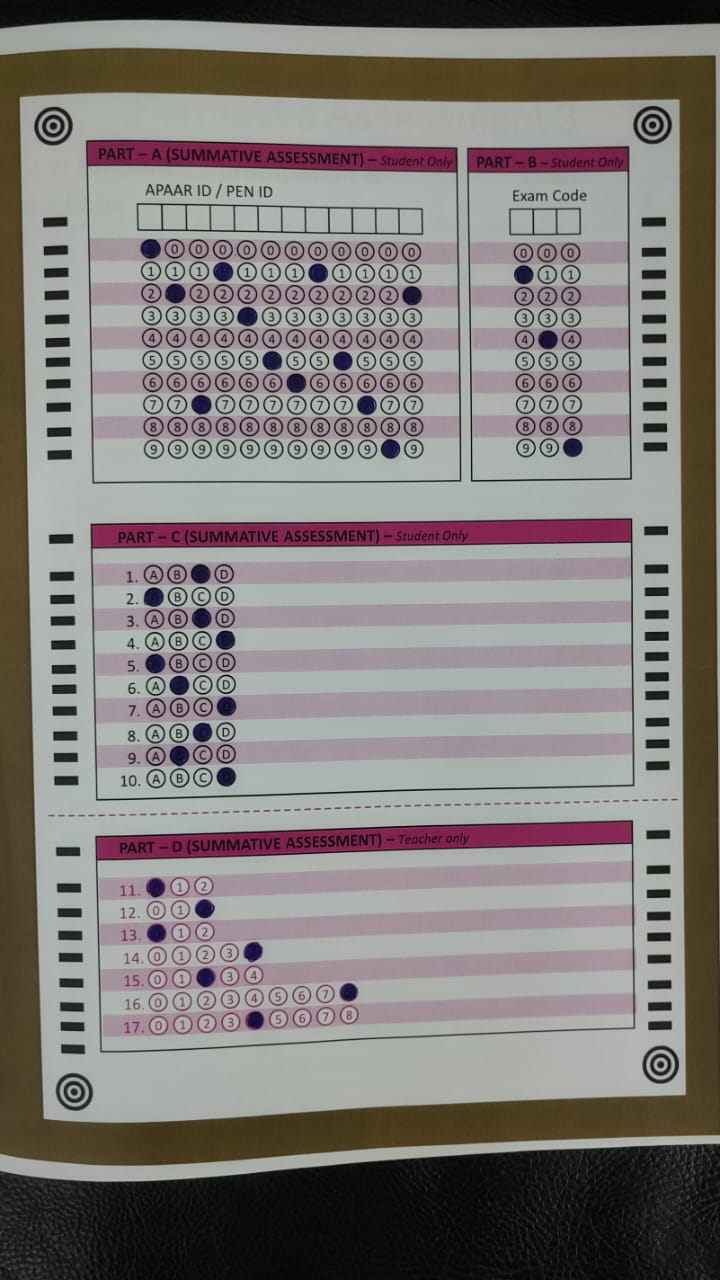 PART – A (SUMMATIVE ASSESSMENT) – Student Only
APAAR ID / PEN ID
0 0 0 0 0 0 0 0 0 0 0
1 1 1 1 1 1 1 1 1 1
2 2 2 2 2 2 2 2 2 2
3 3 3 3 3 3 3 3 3 3 3
4 4 4 4 4 4 4 4 4 4 4 4
5 5 5 5 5 5 5 5 5 5
6 6 6 6 6 6 6 6 6 6 6
7 7 7 7 7 7 7 7 7 7
8 8 8 8 8 8 8 8 8 8 8 8
9 9 9 9 9 9 9 9 9 9 9
PART – B – Student Only
Exam Code
0 0 0
1 1
2 2 2
3 3 3
4 4
5 5 5
6 6 6
7 7 7
8 8 8
9 9
PART – C (SUMMATIVE ASSESSMENT) – Student Only
1. A B D
2. B C D
3. A B D
4. A B C
5. B C D
6. A C D
7. A B C
8. A B D
9. A C D
10. A B C
PART – D (SUMMATIVE ASSESSMENT) – Teacher only
11. 1 2
12. 0 1
13. 1 2
14. 0 1 2 3
15. 0 1 3 4
16. 0 1 2 3 4 5 6 7
17. 0 1 2 3 5 6 7 8